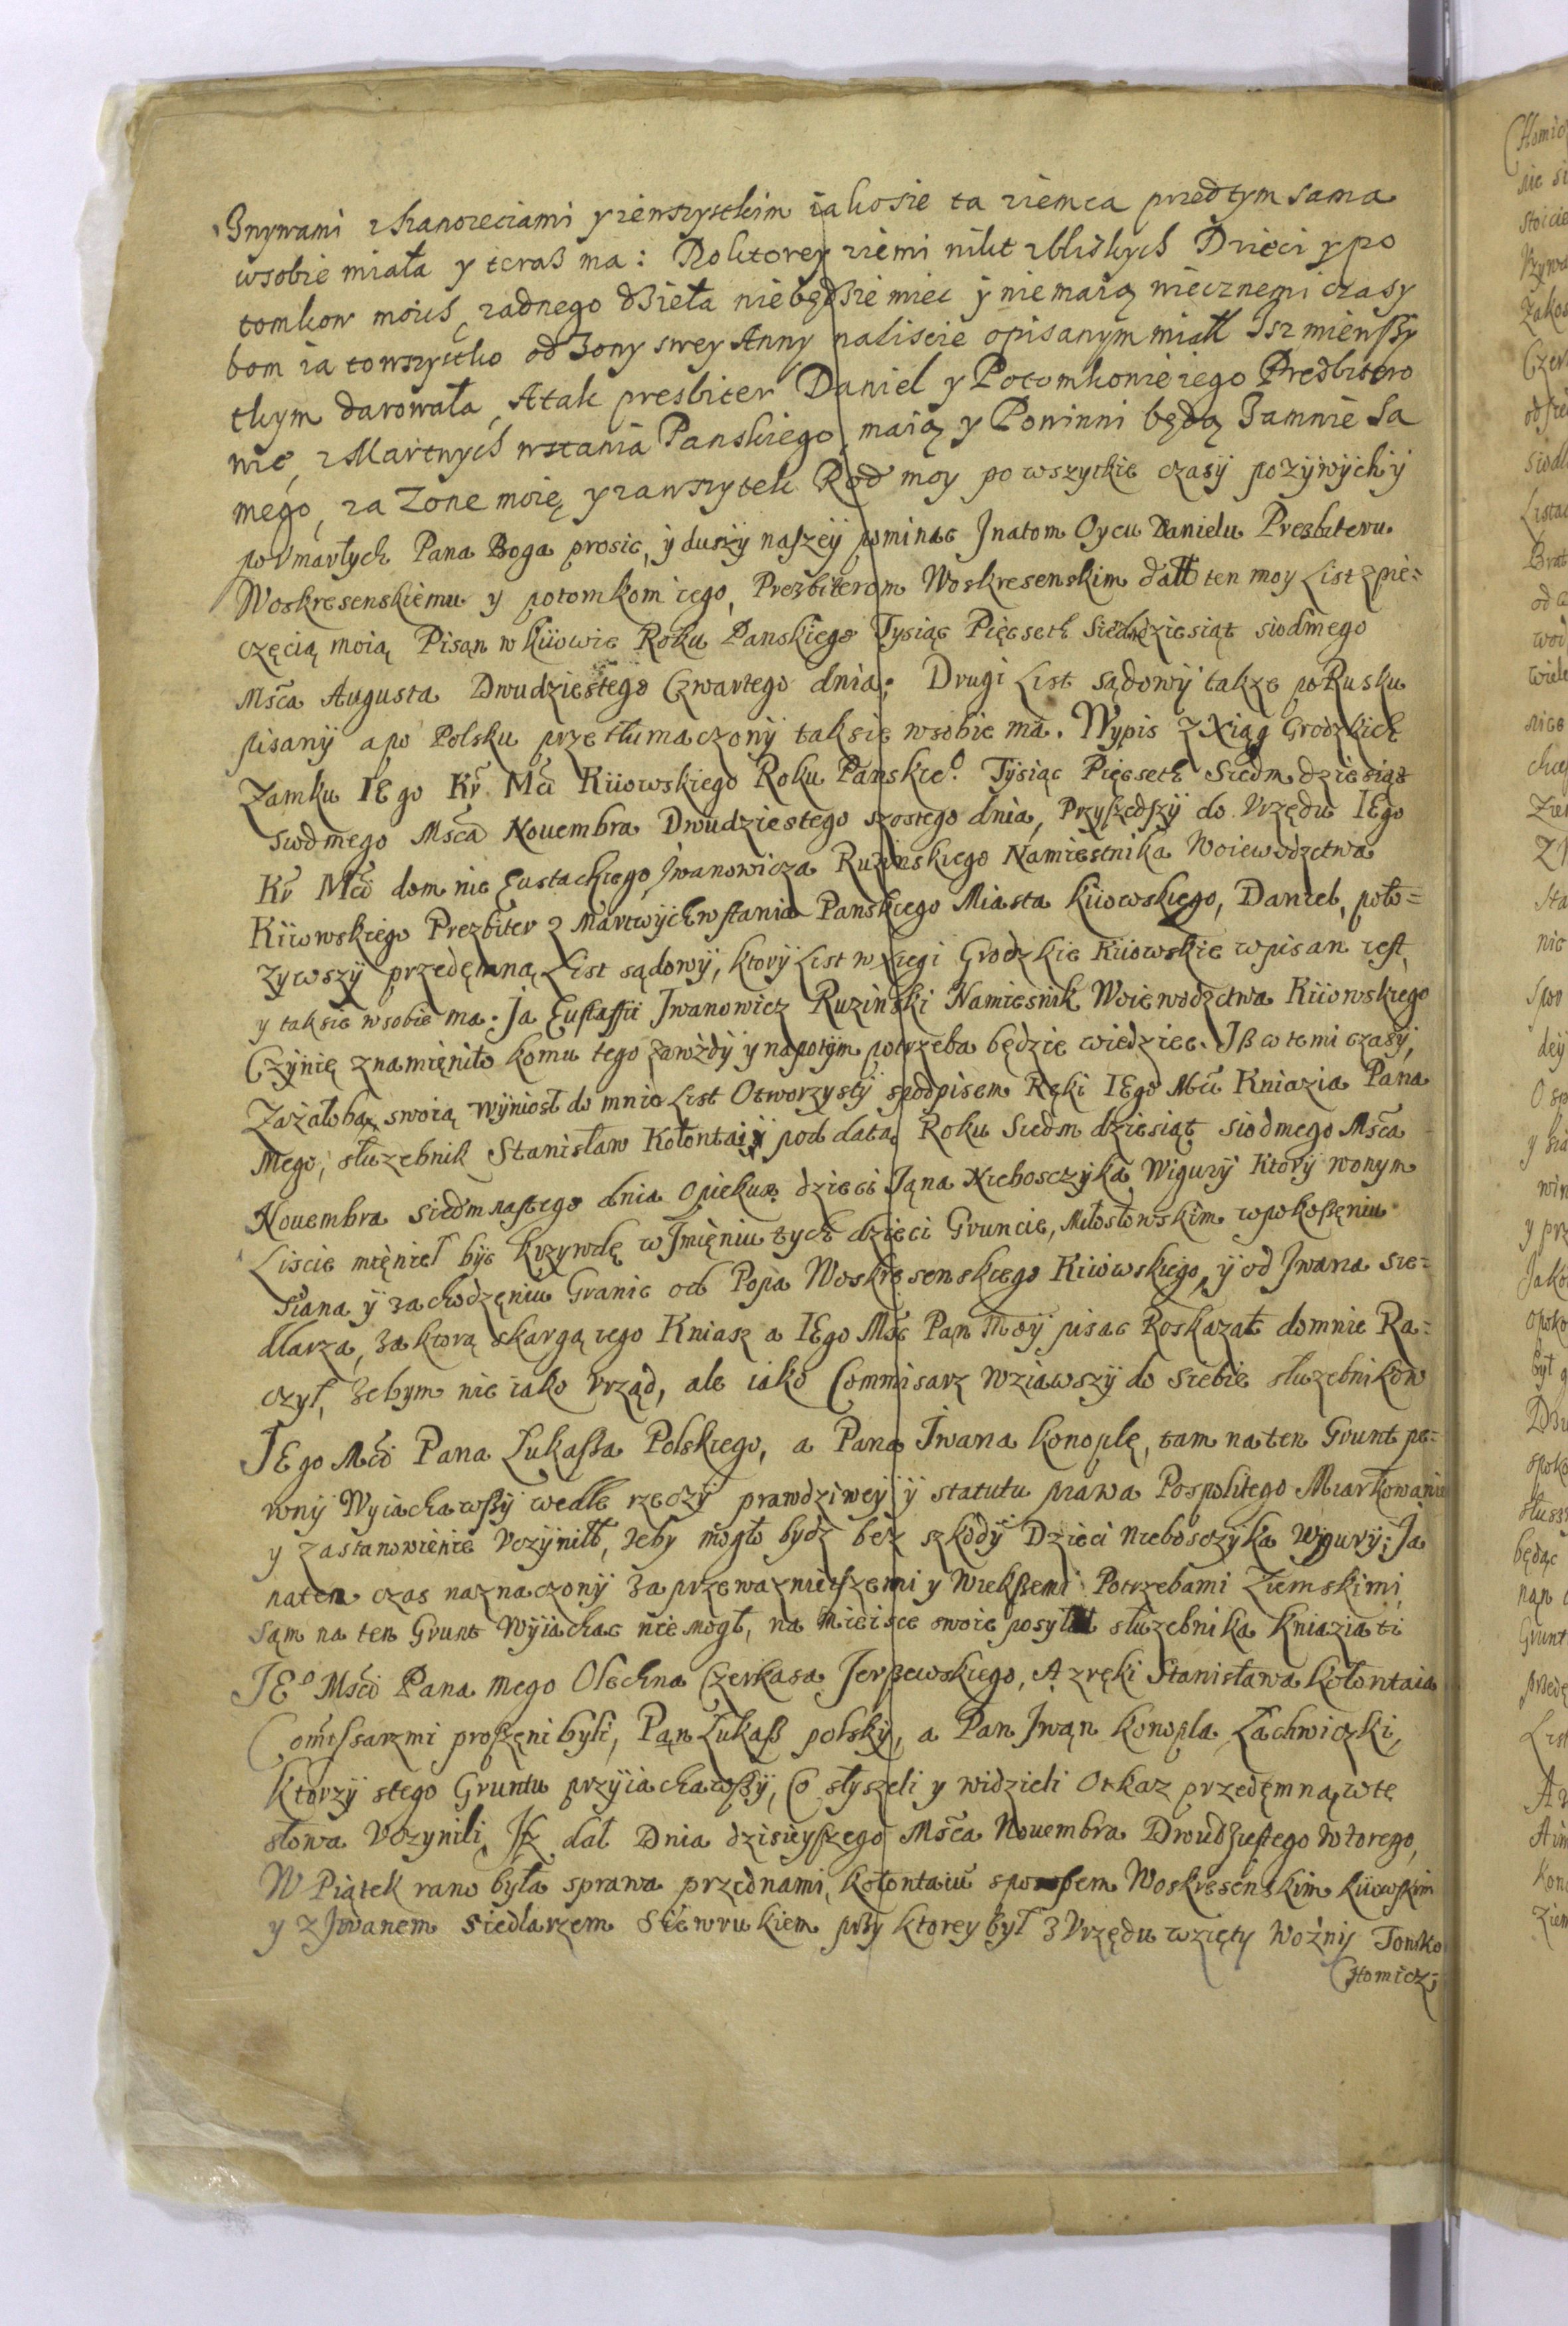 Znywami z Sianozeciami y zewszystkim iakosie ta ziemca przedtym sama
wsobie miała y teraß ma: Doktorey ziemi nikt zbliskych Dzieci y po
tomkow moich, zadnego dzieła niebędzie miec y niemaią wiecznemi czasy
bom ia towszystko od Zony swey Anny naliscie opisanym miałł Jsz mienßzy
tkym darowała, Atak presbiter Daniel y Potomkowie iego Presbitero
wie, zMartwych wstania Panskiego, maią y Powinni będą Zamnie Sa
mego, za Zone moię y zawszytek Rod moy po wszytkie czasÿ pozÿwÿch ÿ
poVmarłych Pana Boga prosic, ÿ duszÿ naszeÿ pominac Jnatom Oycu Danielu Prezbiteru
Woskresenskiemu y potomkom iego, Prezbiterom Woskresenskim dałł ten moy List zpie=
częcią moią Pisan w kiiowie Roku Panskiego Tysiąc Pięcseth Siedmdziesiąt siodmego
Msca Augusta Dwudziestego Czwartego dnia; Drugi List sądowÿ takze poRusku
pisanÿ apo Polsku przetłumaczonÿ taksie wsobie ma. Wypis z Xiąg Grodzkich
Zamku IEgo Kr Mci Kiiowskiego Roku Panskieo. Tysiąc Pięcseth Siedm dziesiąt
siodmego Msca Nouembra Dwudziestego szostego dnia, Przyszedszÿ do Vrzędu IEgo
Kr Mci dom nie Eustachiego Jwanowicza Ruzinskiego Namiestnika Woiewodzctwa
Kiiowskiego Prezbiter z Martwÿchwstania Panskiego Miasta kiiowskiego, Daniel, poło=
zywszÿ przedęmną List sądowÿ, ktorÿ List w Xiegi Grodzkie Kiiowskie wpisan iest
y taksie wsobie ma. Ja Eustaffii Jwanowicz Ruzinski Namiesnik Woiewodzctwa Kiiowskiego
Czÿnię znamięnito komu tego zawżdÿ y napotÿm potrzeba będzie wiedziec. Jß w temi czasÿ,
Zażałobą swoią wÿniosł do mnie List Otworzystÿ spodpisem Ręki IEgo Mci Kniazia Pana
Mego, słuzebnik Stanisław Kołontaiÿ pod datą Roku Siedm dziesiąt siodmego Msca
Nouembra siedmnastego dnia Opiekun dzieci Jąna Niebosczyka Wigurÿ Ktorÿ wonym
Liscie mięnieł byc krzywdę w Jmięniu tych dzieci Gruncie, Miłosłowskim wpokoßęniu
siana ÿ zachodzęniu Granic od Popa Woskresenskiego Kiiowskiego, ÿ od Jwana sie=
dlarza, za ktorą skargą iego Kniasz a IEgo Mśc Pąn Moÿ pisac Roskazał domnie Ra=
czył, żebym nie iako Vrząd, ale iako Commisarz wziawszÿ do siebie słuzebnikow
IEgo Mści Pana Łukaßa Polskiego, a Pana Jwana konoplę, tam na ten Grunt pe=
wnÿ Wyiachawßÿ wedle rzeczÿ prawdziweÿ ÿ statutu prawa Pospolitego Miarkowanie
y zastanowienie Vczÿniłł, żeby mogło bydz bez szkodÿ Dzieci nieboszczyka Wigurÿ; Ja
naten czas naznaczonÿ za przewaznieiszemi y Wiekßemi Potrzebami Ziemskimi
sąm na ten Grunt Wÿiachac nie mogł, na mieisce swoie posyłał słuzebnika kniazia ti
JEo Mści Pana mego Olechna Czerkasa Jerßewskiego, A zręki Stanisława kołontaia
Comissarzmi proßęni byli, Pąn Łukaß polskÿ, a Pan Jwąn konopla Łachwiczki,
ktorzÿ stego Gruntu przÿiachawßÿ, Co słyszeli y widzieli Otkaz przedęmną wte
słowa Vczynili, Jß dał Dnia dzisieyszego Msca Nouembra Dwudziestego wtorego,
W Piątek rano była sprawa przednami, kołontaiu spopem Woskresenskim kiiowskim
y z Jwanem siedlarzem Siewrukiem prży ktorey był z Vrzędu wzięty Woźnÿ Tomko
Chomicz;